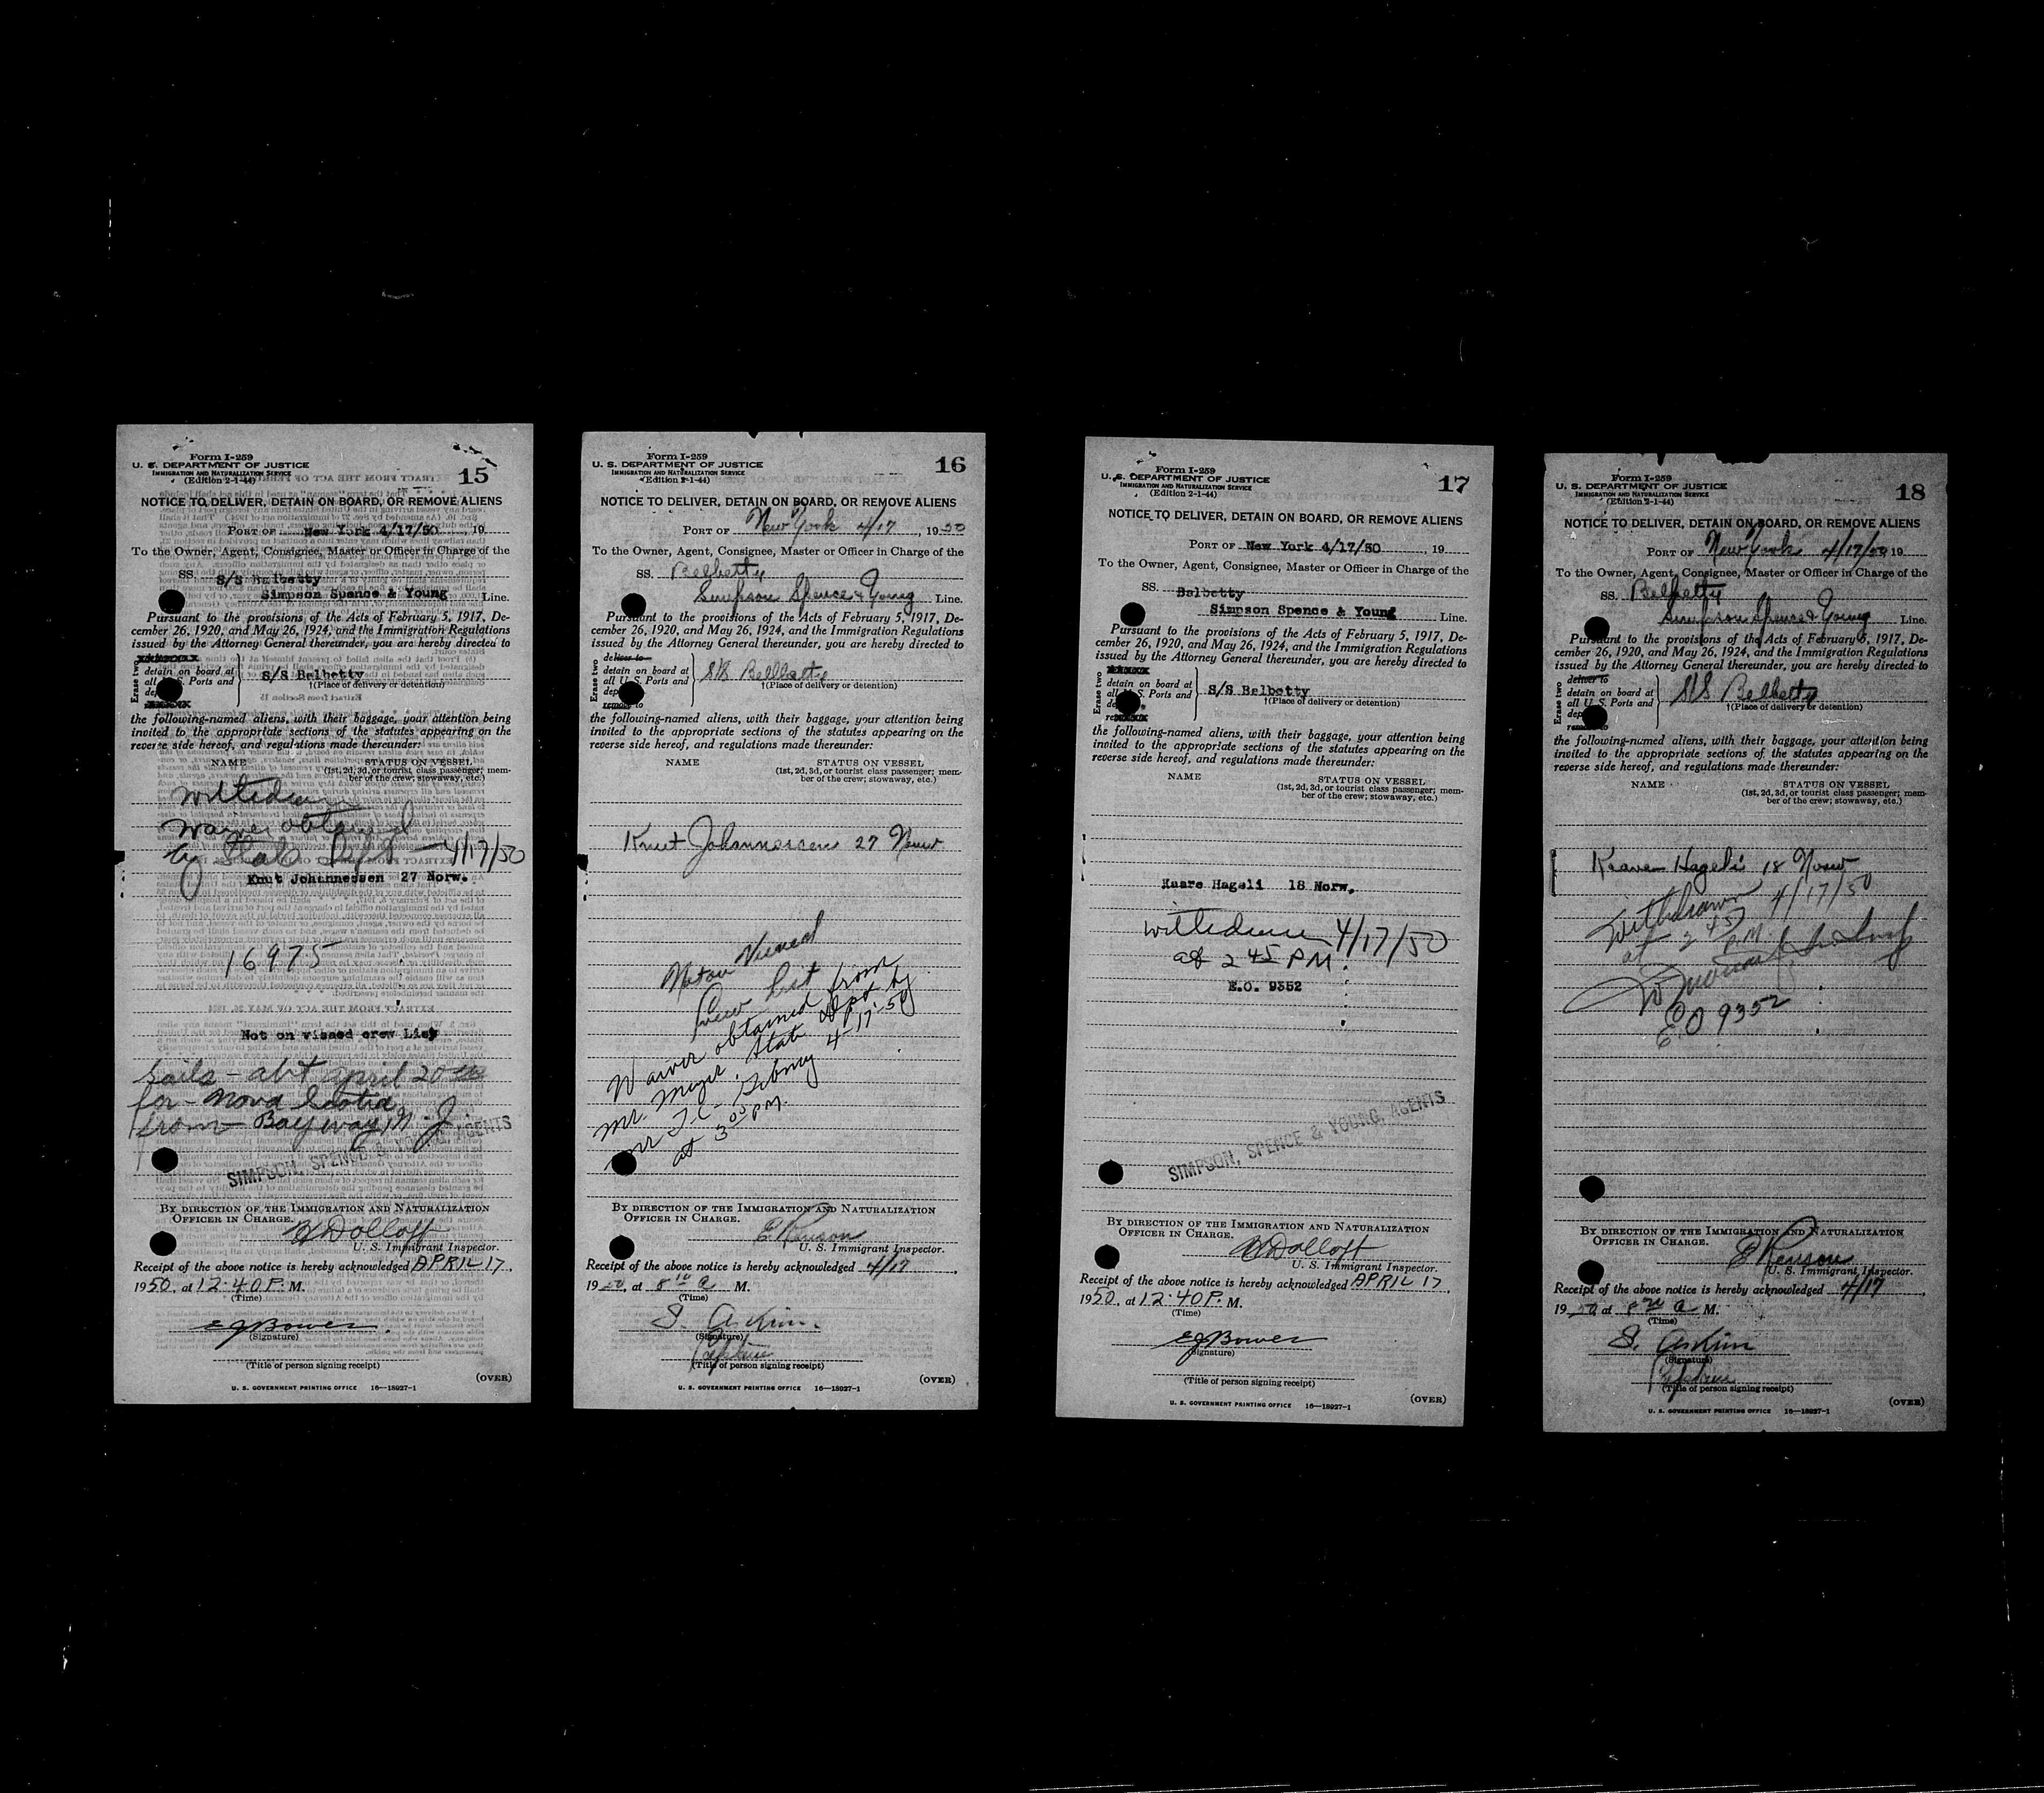 Form I-259
U. S. DEPARTMENT OF JUSTICE
IMMIGRATION AND NATURALIZATION SERVICE
(Edition 2-1-44)
15
NOTICE TO DELIVER, DETAIN ON BOARD, OR REMOVE ALIENS
PORT OF New York 4/17/50, 19
To the Owner, Agent, Consignee, Master or Officer in Charge of the
SS. S/S Belbetty
Simpson Spence & Young Line.
Pursuant to the provisions of the Acts of February 5, 1917, De-
cember 26, 1920, and May 26, 1924, and the Immigration Regulations
issued by the Attorney General thereunder, you are hereby directed to
Erase two
detain on board at
all U. S. Ports and
S/S Belbetty
†(Place of delivery or detention)
the following-named aliens, with their baggage, your attention being
invited to the appropriate sections of the statutes appearing on the
reverse side hereof, and regulations made thereunder:
NAME STATUS ON VESSEL
(1st, 2d, 3d, or tourist class passenger; mem-
ber of the crew; stowaway, etc.)
Withdrawn
Waiver obtained
by State Dept — 4/17/50
Knut Johannessen 27 Norw.
16975
Not on visaed crew List
Sails - abt April 20th
for Nova Scotia
from Bayway, N. J.
SIMPSON, SPENCE & YOUNG, AGENTS
BY DIRECTION OF THE IMMIGRATION AND NATURALIZATION
OFFICER IN CHARGE.
Dolloff
U. S. Immigrant Inspector.
Receipt of the above notice is hereby acknowledged APRIL 17,
1950, at 12:40 P. M.
(Time)
EJ Bower
(Signature)
(Title of person signing receipt)
(OVER)
U. S. GOVERNMENT PRINTING OFFICE 16—18927-1
Form I-259
U. S. DEPARTMENT OF JUSTICE
IMMIGRATION AND NATURALIZATION SERVICE
(Edition 2-1-44)
16
NOTICE TO DELIVER, DETAIN ON BOARD, OR REMOVE ALIENS
PORT OF New York 4/17, 1950
To the Owner, Agent, Consignee, Master or Officer in Charge of the
SS. Belbetty
Simpson Spence & Young Line.
Pursuant to the provisions of the Acts of February 5, 1917, De-
cember 26, 1920, and May 26, 1924, and the Immigration Regulations
issued by the Attorney General thereunder, you are hereby directed to
Erase two
deliver to
detain on board at
all U. S. Ports and
remove to
S/S Bellbetty
†(Place of delivery or detention)
the following-named aliens, with their baggage, your attention being
invited to the appropriate sections of the statutes appearing on the
reverse side hereof, and regulations made thereunder:
NAME STATUS ON VESSEL
(1st, 2d, 3d, or tourist class passenger; mem-
ber of the crew; stowaway, etc.)
Knut Johannessen 27 Norw
Not on Visaed
Crew List
Waiver obtained from
Mr. Meyer, State Dept by
at 3 00 P.M. 4-17-50
BY DIRECTION OF THE IMMIGRATION AND NATURALIZATION
OFFICER IN CHARGE.
E Kenson
U. S. Immigrant Inspector.
Receipt of the above notice is hereby acknowledged 4/17,
1950, at 8 10 a M.
(Time)
S. Askim
(Signature)
Captain
(Title of person signing receipt)
(OVER)
U. S. GOVERNMENT PRINTING OFFICE 16—18927-1
Form I-259
U. S. DEPARTMENT OF JUSTICE
IMMIGRATION AND NATURALIZATION SERVICE
(Edition 2-1-44)
17
NOTICE TO DELIVER, DETAIN ON BOARD, OR REMOVE ALIENS
PORT OF New York 4/17/50, 19
To the Owner, Agent, Consignee, Master or Officer in Charge of the
SS. Belbetty
Simpson Spence & Young Line.
Pursuant to the provisions of the Acts of February 5, 1917, De-
cember 26, 1920, and May 26, 1924, and the Immigration Regulations
issued by the Attorney General thereunder, you are hereby directed to
Erase two
detain on board at
all U. S. Ports and
S/S Belbetty
†(Place of delivery or detention)
the following-named aliens, with their baggage, your attention being
invited to the appropriate sections of the statutes appearing on the
reverse side hereof, and regulations made thereunder:
NAME STATUS ON VESSEL
(1st, 2d, 3d, or tourist class passenger; mem-
ber of the crew; stowaway, etc.)
Kaare Hageli 18 Norw.
Withdrawn 4/17/50
at 2 45 PM.
E.O. 9352
SIMPSON, SPENCE & YOUNG, AGENTS
BY DIRECTION OF THE IMMIGRATION AND NATURALIZATION
OFFICER IN CHARGE.
Dolloff
U. S. Immigrant Inspector.
Receipt of the above notice is hereby acknowledged APRIL 17,
1950, at 12:40 P. M.
(Time)
EJ Bower
(Signature)
(Title of person signing receipt)
(OVER)
U. S. GOVERNMENT PRINTING OFFICE 16—18927-1
Form I-259
U. S. DEPARTMENT OF JUSTICE
IMMIGRATION AND NATURALIZATION SERVICE
(Edition 2-1-44)
18
NOTICE TO DELIVER, DETAIN ON BOARD, OR REMOVE ALIENS
PORT OF New York 4/17/50 19
To the Owner, Agent, Consignee, Master or Officer in Charge of the
SS. Belbetty
Simpson Spence & Young Line.
Pursuant to the provisions of the Acts of February 5, 1917, De-
cember 26, 1920, and May 26, 1924, and the Immigration Regulations
issued by the Attorney General thereunder, you are hereby directed to
Erase two
deliver to
detain on board at
all U. S. Ports and
remove to
S/S Belbetty
†(Place of delivery or detention)
the following-named aliens, with their baggage, your attention being
invited to the appropriate sections of the statutes appearing on the
reverse side hereof, and regulations made thereunder:
NAME STATUS ON VESSEL
(1st, 2d, 3d, or tourist class passenger; mem-
ber of the crew; stowaway, etc.)
Hageli 18 Norw
Withdrawn 4/17/50
at 2 45 P.M.
EO 9352
BY DIRECTION OF THE IMMIGRATION AND NATURALIZATION
OFFICER IN CHARGE.
E Kenson
U. S. Immigrant Inspector.
Receipt of the above notice is hereby acknowledged 4/17
1950 at a M.
(Time)
S. Askim
(Signature)
Captain
(Title of person signing receipt)
(OVER)
U. S. GOVERNMENT PRINTING OFFICE 16—18927-1